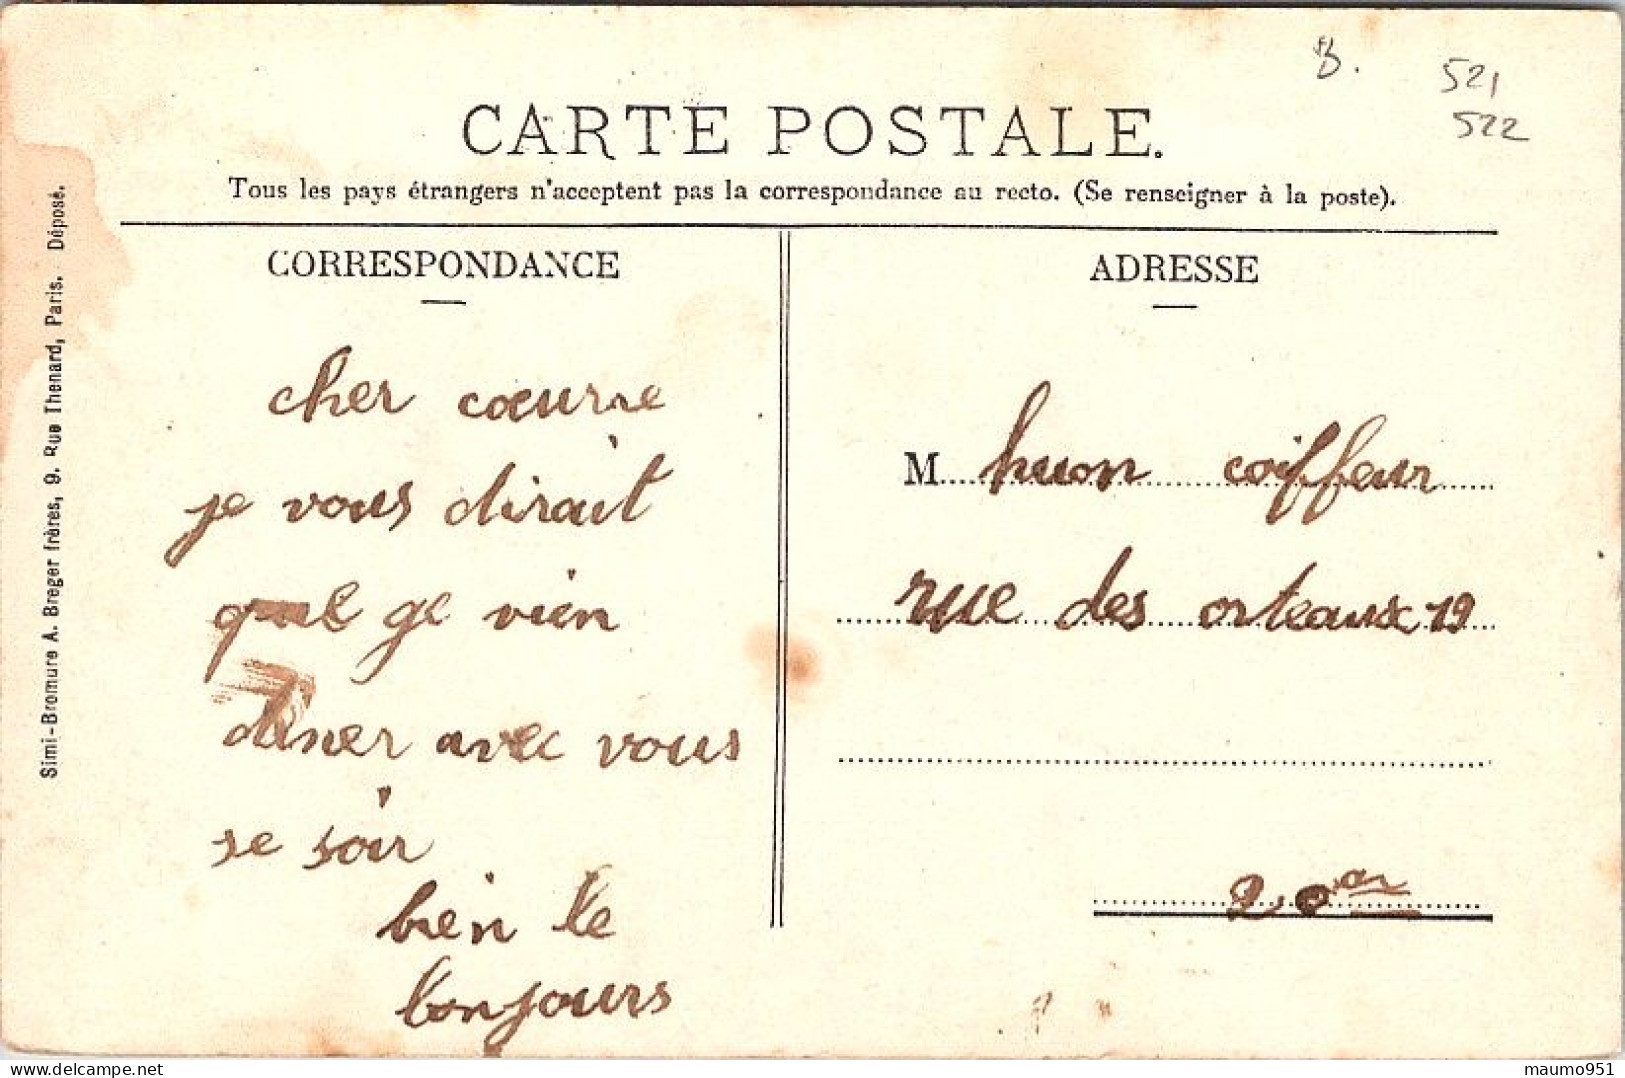 B. 521
522
CARTE POSTALE.
Tous les pays étrangers n'acceptent pas la correspondance au recto. (Se renseigner à la poste).
Simi-Bromure A. Breger frères, 9. Rue Thenard, Paris. Déposé.
CORRESPONDANCE
cher cœure
je vous dirait
que ge vien
diner avec vous
se soir
bien le
bonjours
ADRESSE
M huon coiffeur
rue des orteaux 19
20 ar
delcampe.net
maumo951